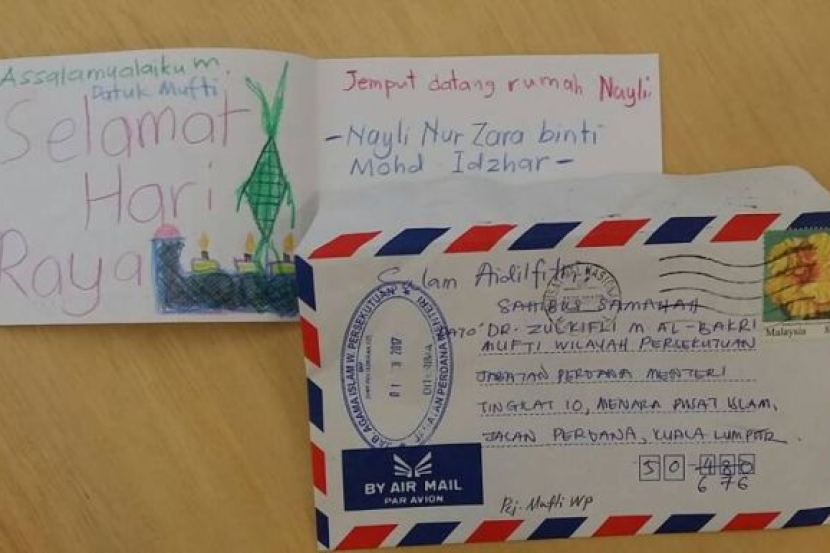 Assalamualaikum,
Datuk Mufti
Selamat
Hari
Raya
Jemput datang rumah Nayli.
-Nayli Nur Zara binti
Mohd Idzhar-
Salam Aidilfitri
SAHIBUS SAMAHAH
DATO' DR. ZULKIFLI M AL-BAKRI
MUFTI WILAYAH PERSEKUTUAN
JABATAN PERDANA MENTERI
TINGKAT 10, MENARA PUSAT ISLAM,
JALAN PERDANA, KUALA LUMPUR.
50 480
676
Malaysia
JAB. AGAMA ISLAM W. PERSEKUTUAN
2017
DITERIMA
JABATAN PERDANA MENTERI
BY AIR MAIL
PAR AVION
Pej. Mufti WP